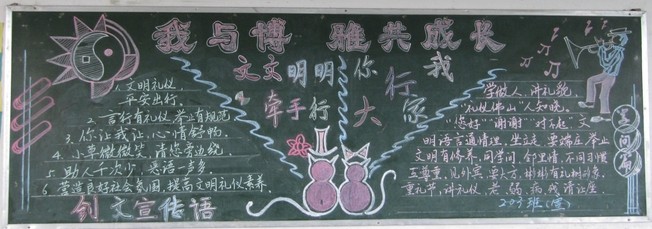 我与博雅共成长
文文明明
牵手行
你我
大行家
1.文明礼仪，
平安出行。
2.言行有礼仪 举止有规范
3.你让我让，心情舒畅。
4.小草微微笑，请您旁边绕。
5.助人千次少，恶语一声多。
6.营造良好社会氛围，提高文明礼仪素养。
创文宣传语
学做人，讲礼貌，
礼仪佛山人知晓。
"您好""谢谢""对不起"，文
明语言通情理，坐立走要端庄，举止
文明有修养，同学间，邻里情，不同习惯
互尊重，见外宾，要大方，彬彬有礼树形象，
重礼节，讲礼仪，老、弱、病、残请让座。
203班(宣)